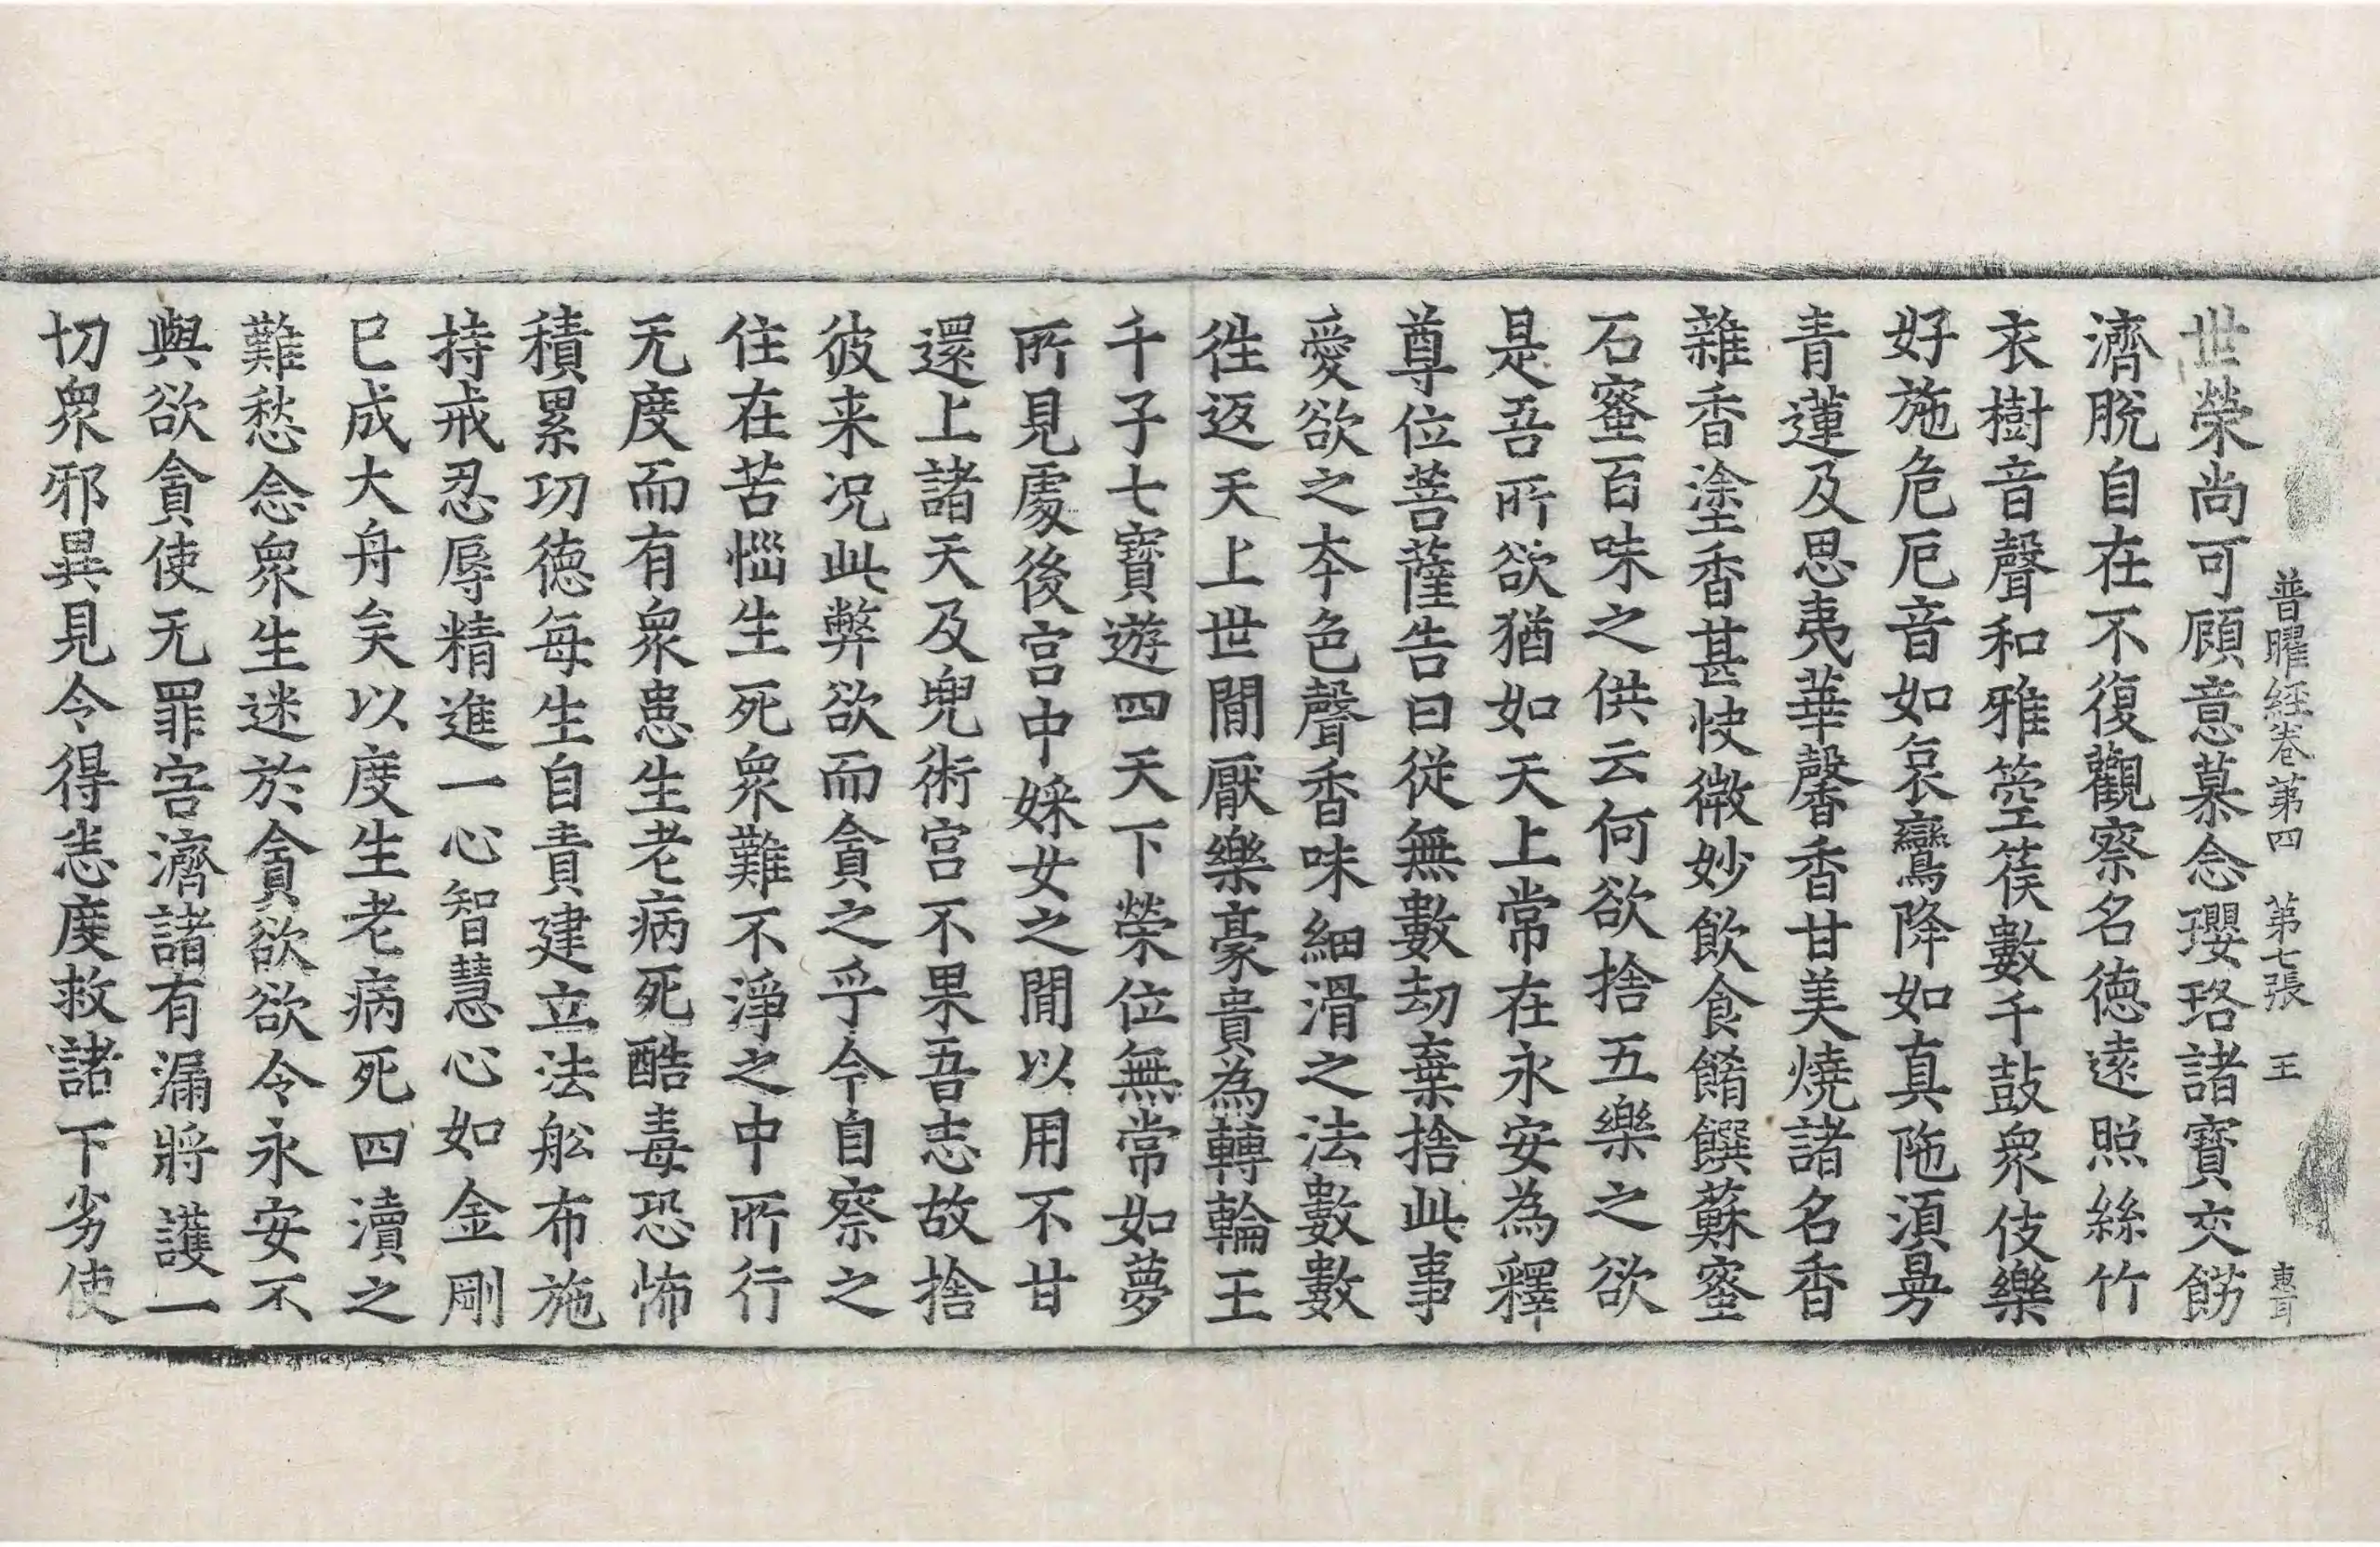 普曜経卷第四 第七張 王 惠耳
世榮尚可顧意慕念瓔珞諸寶交餝
濟脫自在不復觀察名德遠照絲竹
衣樹音聲和雅箜篌數千鼓衆伎樂
好施危厄音如哀鸞降如真陁湏曼
青蓮及思夷華馨香甘美燒諸名香
雜香塗香甚快微妙飲食餚饌蘇蜜
石蜜百味之供云何欲捨五樂之欲
是吾所欲猶如天上常在永安為釋
尊位菩薩告曰從無數劫棄捨此事
愛欲之夲色聲香味細滑之法數數
徃返天上世間厭樂豪貴為轉輪王
千子七寶遊四天下榮位無常如夢
所見處後宮中婇女之間以用不甘
還上諸天及兜術宮不果吾志故捨
彼来况此弊欲而貪之乎今自察之
住在苦惱生死衆難不淨之中所行
无度而有衆患生老病死酷毒恐怖
積累功德每生自責建立法舩布施
持戒忍辱精進一心智慧心如金剛
已成大舟矣以度生老病死四瀆之
難愁念衆生迷於貪欲欲令永安不
與欲貪使无罪害濟諸有漏將護一
切衆邪異見令得恙度救諸下劣使